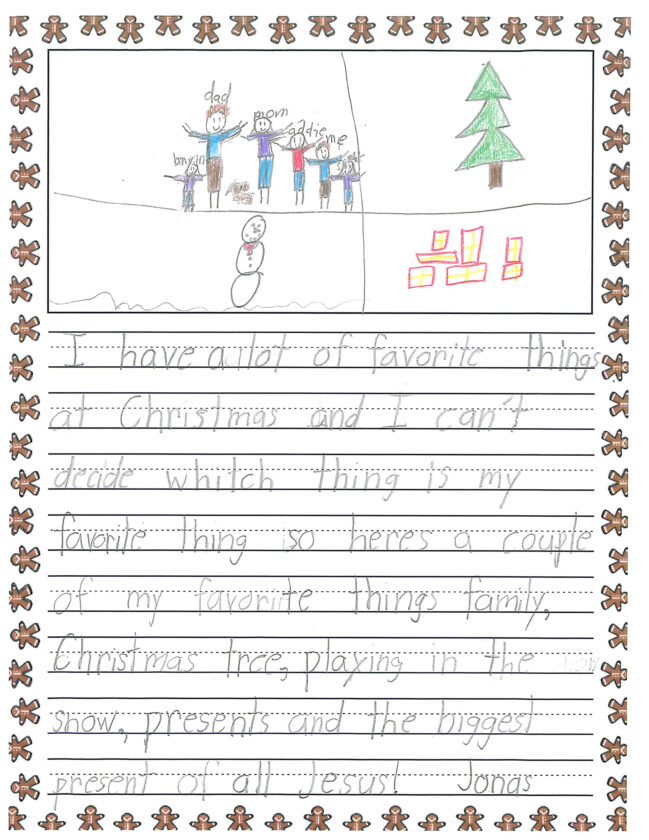 dad
mom
addie
me
I have a lot of favorite things
at Christmas and I can't
decide whitch thing is my
favorite thing so heres a couple
of my favoriite things family,
Christmas tree, playing in the
snow, presents and the biggest
present of all Jesus! Jonas